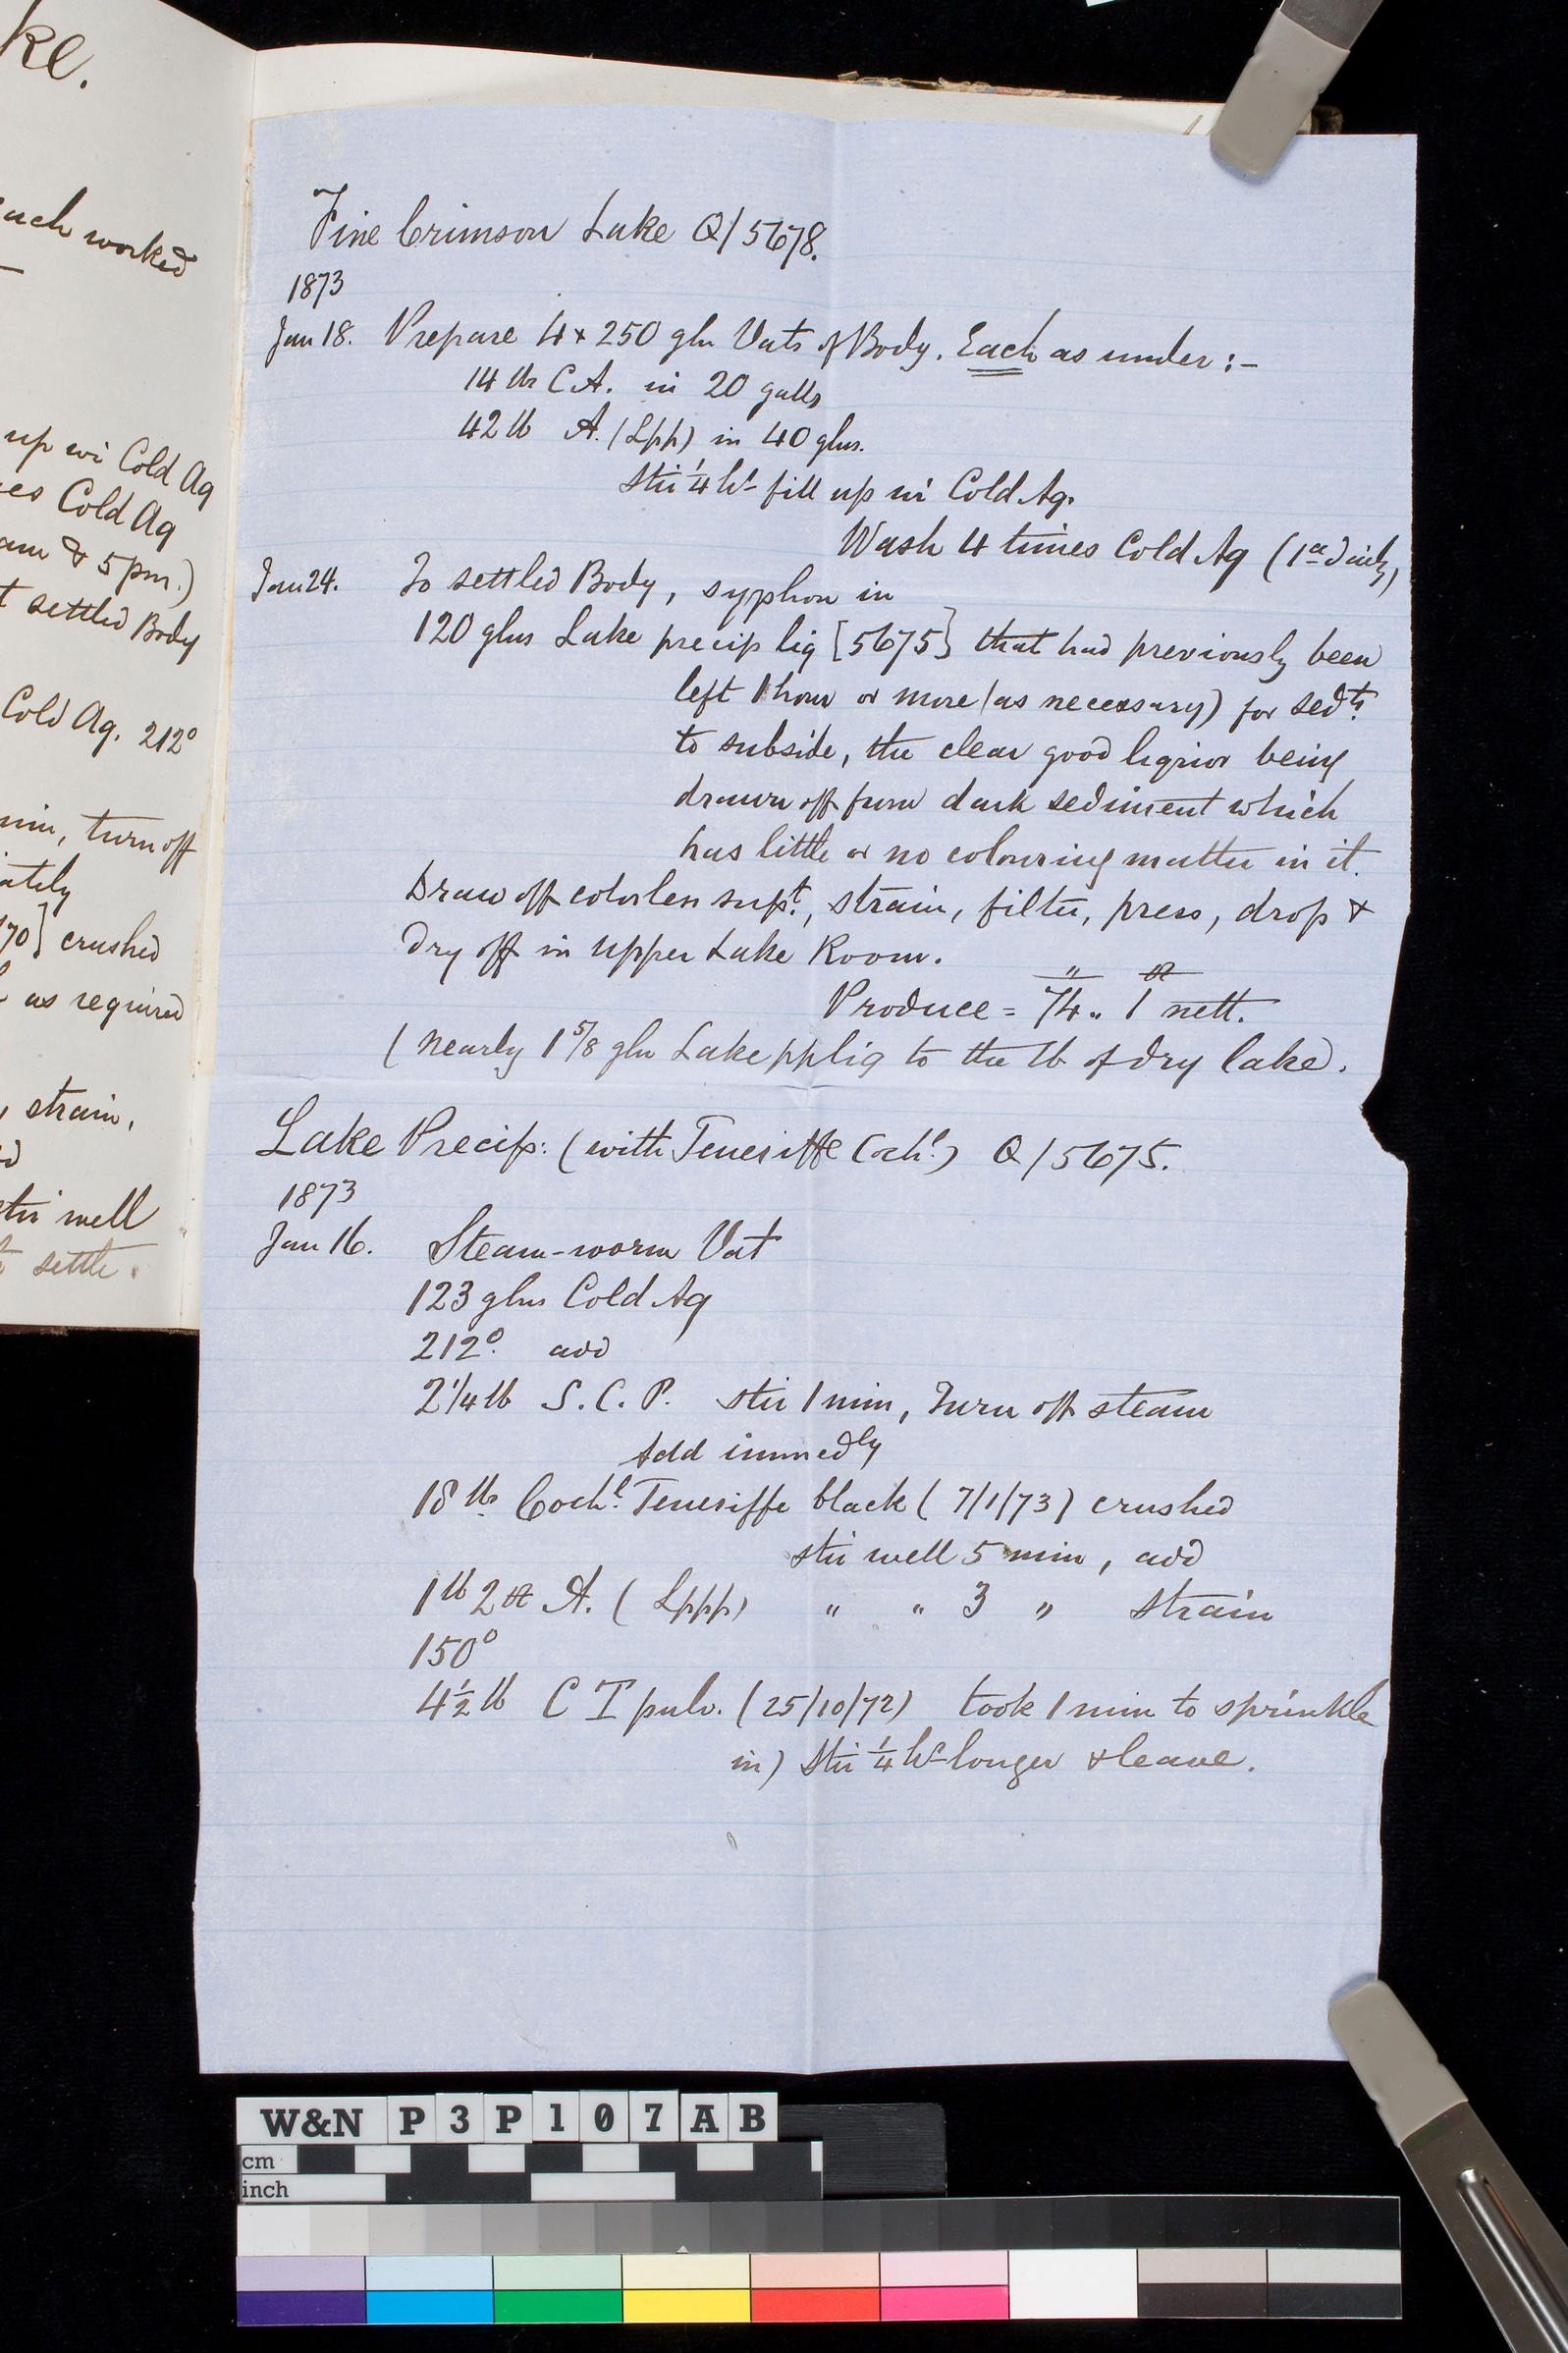 ke.
each worked
up wi Cold Aq
es Cold Aq
am & 5 pm.)
t settled Body
Cold Aq. 212°
min, turn off
ately
70] crushed
as required
, strain,
d
stir well
to settle.
Fine Crimson Lake Q/5678.
1873
Jan 18. Prepare 4 x 250 gln Vats of Body. Each as under :-
14 lbs C.A. in 20 galls
42 lb A. (Lpp) in 40 glns.
Stir 1/4 hr fill up wi Cold Aq.
Wash 4 times Cold Aq (1ce daily)
Jan 24. To settled Body, syphon in
120 glns Lake precip liq [5675] that had previously been
left 1 hour or more (as necessary) for sedt.
to subside, the clear good liquor being
drawn off from dark sediment which
has little or no colouring matter in it.
Draw off colorless supt., strain, filter, press, drop &
dry off in upper Lake Room.
" oz
Produce = 74 .. 1 nett.
(nearly 1 5/8 gln Lake pp liq to the lb of dry lake.
Lake Precip: (with Teneriffe Cochl.) Q/5675.
1873
Jan 16. Steam-worm Vat
123 glns Cold Aq
212°. add
2 1/4 lb S.C.P. stir 1 min, Turn off steam
Add immedly
18 lbs Cochl. Teneriffe black (7/1/73) crushed
stir well 5 min, add
1 lb 2 oz A. (Lppp) " " 3 " strain
150°
4 1/2 lb C T pulv. (25/10/72) took 1 min to sprinkle
in) Stir 1/4 hr longer & leave.
W&N P3P107AB
cm
inch